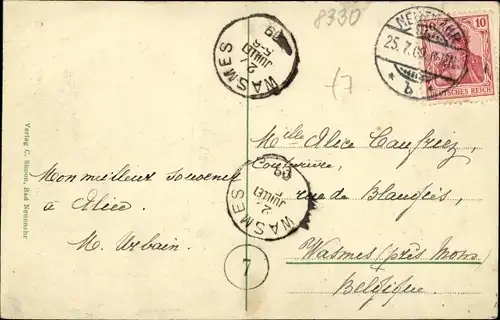 8330
NEUENAHR
25.7.09
* b *
10
DEUTSCHES REICH
WASMES
JUILLET
09
7
Mlle Alice Caufriez,
Couturière,
rue de Blaugies,
Wasmes (près Mons)
Belgique.
WASMES
JUILLET
09
Mon meilleur souvenir
à Alice.
M. Urbain.
7
Verlag C. Simon, Bad Neuenahr